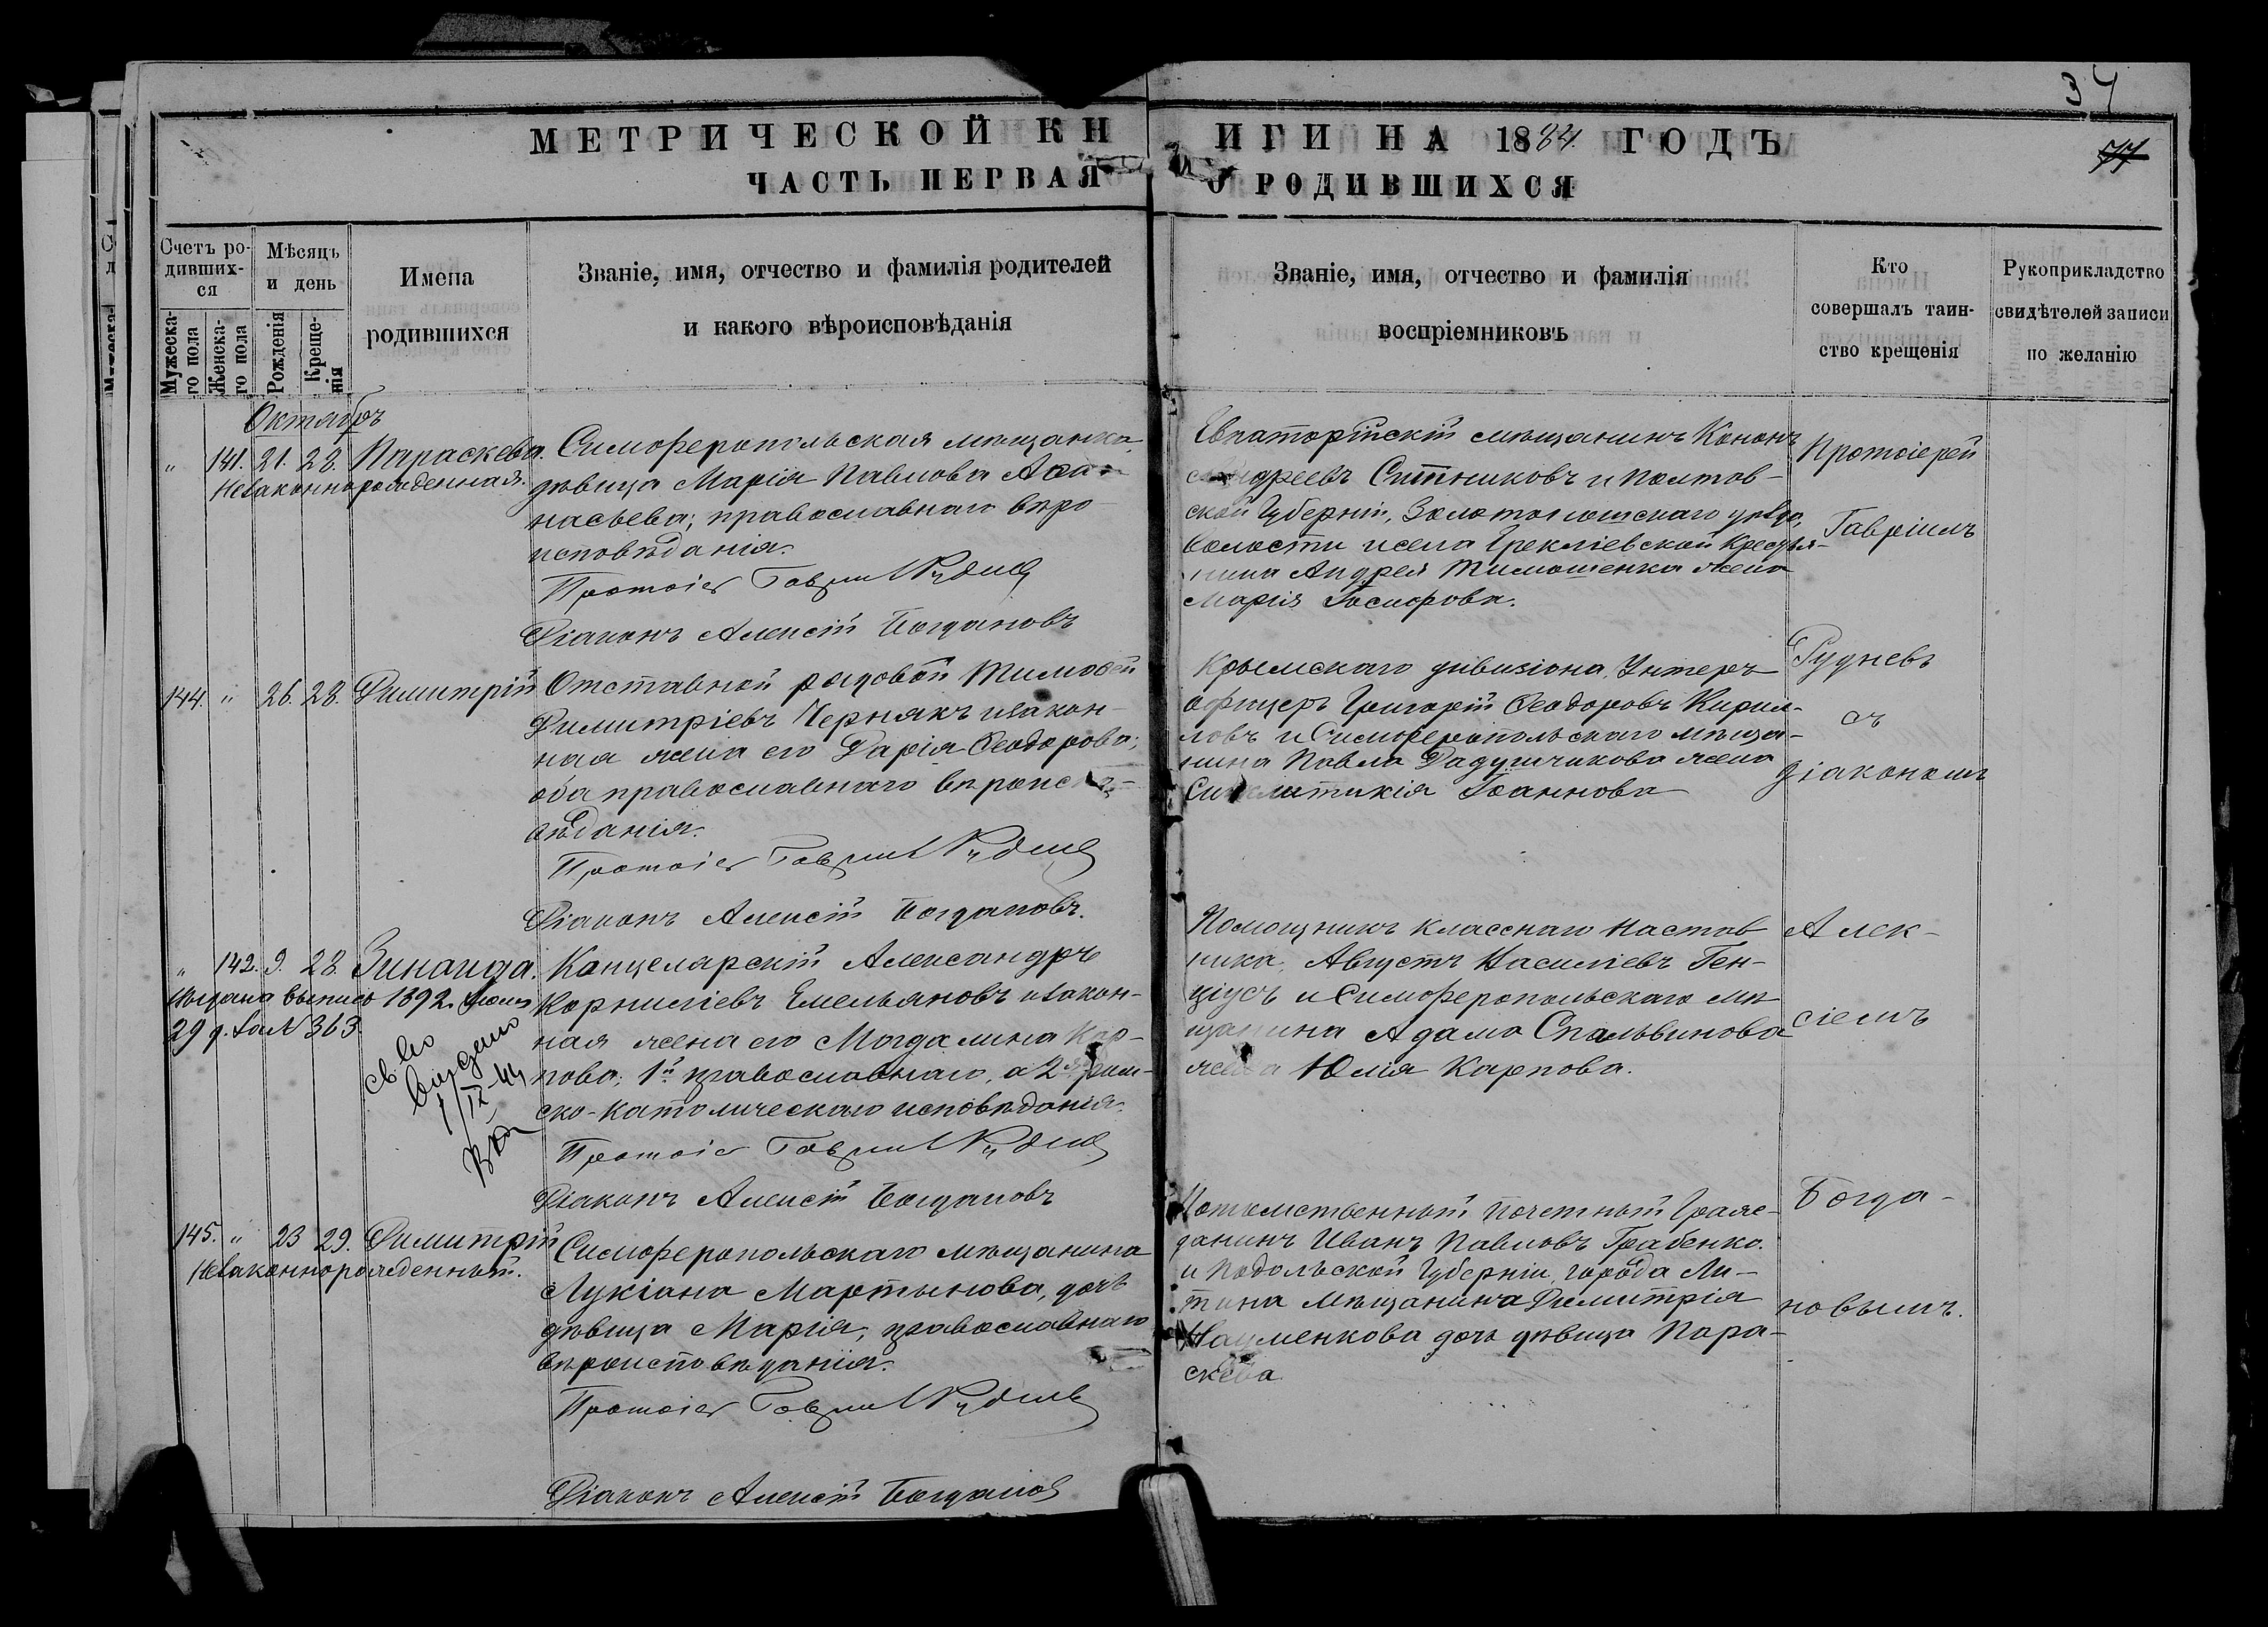 34
МЕТРИЧЕСКОЙ КНИГИ НА 1884 ГОДЪ
77
ЧАСТЬ ПЕРВАЯ О РОДИВШИХСЯ
Счетъ ро-
дивших-
ся
Мужеска-
го пола
Женска-
го пола
Мѣсяцъ
и день
Рожденія
Креще-
нія
Имена
родившихся
Званіе, имя, отчество и фамилія родителей
и какого вѣроисповѣданія
Званіе, имя, отчество и фамилія
воспріемниковъ
Кто
совершалъ таин-
ство крещенія
Рукоприкладство
свидѣтелей записи
по желанію
Октябрь
" 141. 21. 28. Параскева.
Незаконнорожденная.
Симферопольская мѣщанка,
дѣвица Марія Павлова Афа-
насьева; православнаго вѣро-
исповѣданія.
Протоіер Гавріил Руднев
Діаконъ Алексій Богдановъ
Евпаторійскій мѣщанинъ Кононъ
Андреевъ Ситниковъ и Полтав-
ской Губерніи, Золотоношскаго уѣзда,
волости и села Ирклѣевской Крестья-
нина Андрея Тимошенка жена
Марія
144. " 26. 28. Димитрій
Отставной рядовой Тимофей
Димитріевъ Чернякъ и закон-
ная жена его Дарія Феодорова;
оба православнаго вѣроиспо-
вѣданія.
Протоіер Гавріил Руднев
Діаконъ Алексій Богдановъ.
Крымскаго дивизіона, Унтеръ
офицеръ Григорій Феодоровъ Кирил-
ловъ и Симферопольскаго мѣща-
нина Павла Дадушчикова жена
Синклитикія Іоаннова
" 142. 9. 28. Зинаида.
Выдана выпись 1892. Іюля
29 д. за № 363.
св во
выдано
1/IX-44
Канцелярскій Александръ
Корниліевъ Емельяновъ и закон-
ная жена его Магдалина Кар-
пова; 1й православнаго, а 2я рим-
ско-католическаго исповѣданія.
Протоіер Гавріил Руднев
Діаконъ Алексій Богдановъ
Помощникъ класснаго настав
ника, Августъ Василіевъ Ген-
ціусъ и Симферопольскаго мѣ
щанина Адама Спальвинова
жена Юлія Карпова.
145. " 23 29. Димитрій
Незаконнорожденный.
Симферопольскаго мѣщанина
Лукіана Мартынова, дочь
дѣвица Марія, православнаго
вѣроисповѣданія.
Протоіер Гавріил Руднев
Діаконъ Алексій Богданов
Потомственный почетный Граж-
данинъ Иванъ Павловъ Грабенко.
и Подольской Губерніи, города Ли-
тина мѣщанина Димитрія
Науменкова дочь дѣвица Пара-
скева
Протоіерей
Гавріилъ
Рудневъ
съ
діакономъ
Алек-
сіемъ
Богда-
новымъ.